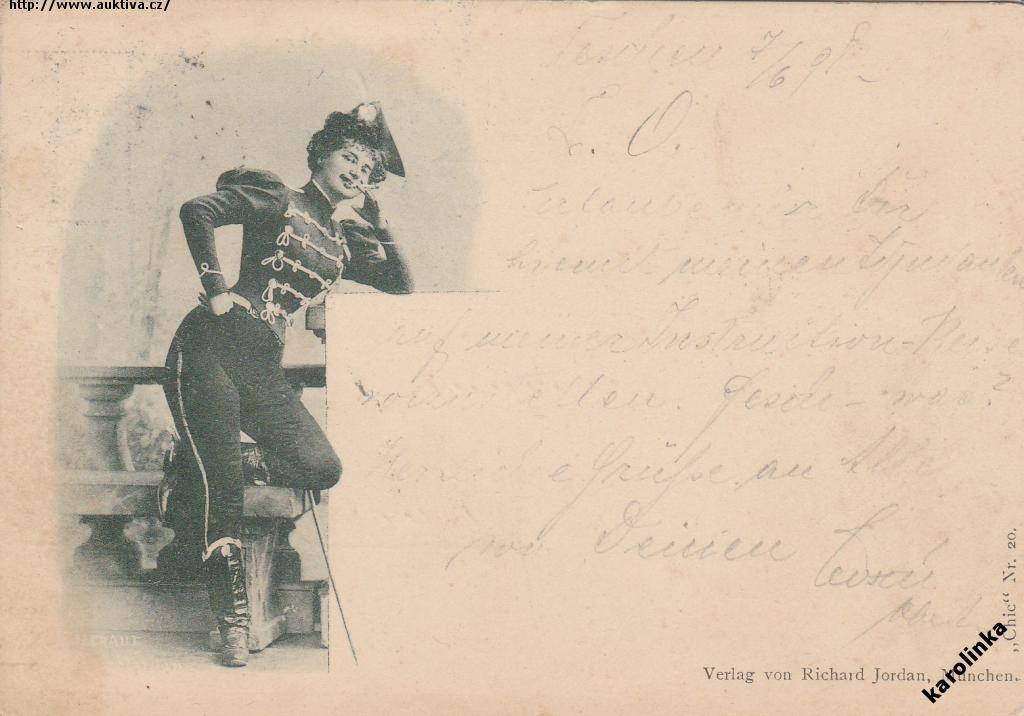 http://www.auktiva.cz/
Teschen 7/6 98
L. O.
Erlaube mir Dir
hiemit meinen
auf meiner Instruction-Reise
vorzustellen. Fesch - was?
Herzliche Grüße an Alle
von Deinien
Verlag von Richard Jordan, München.
„Chic“ Nr. 20.
karolinka